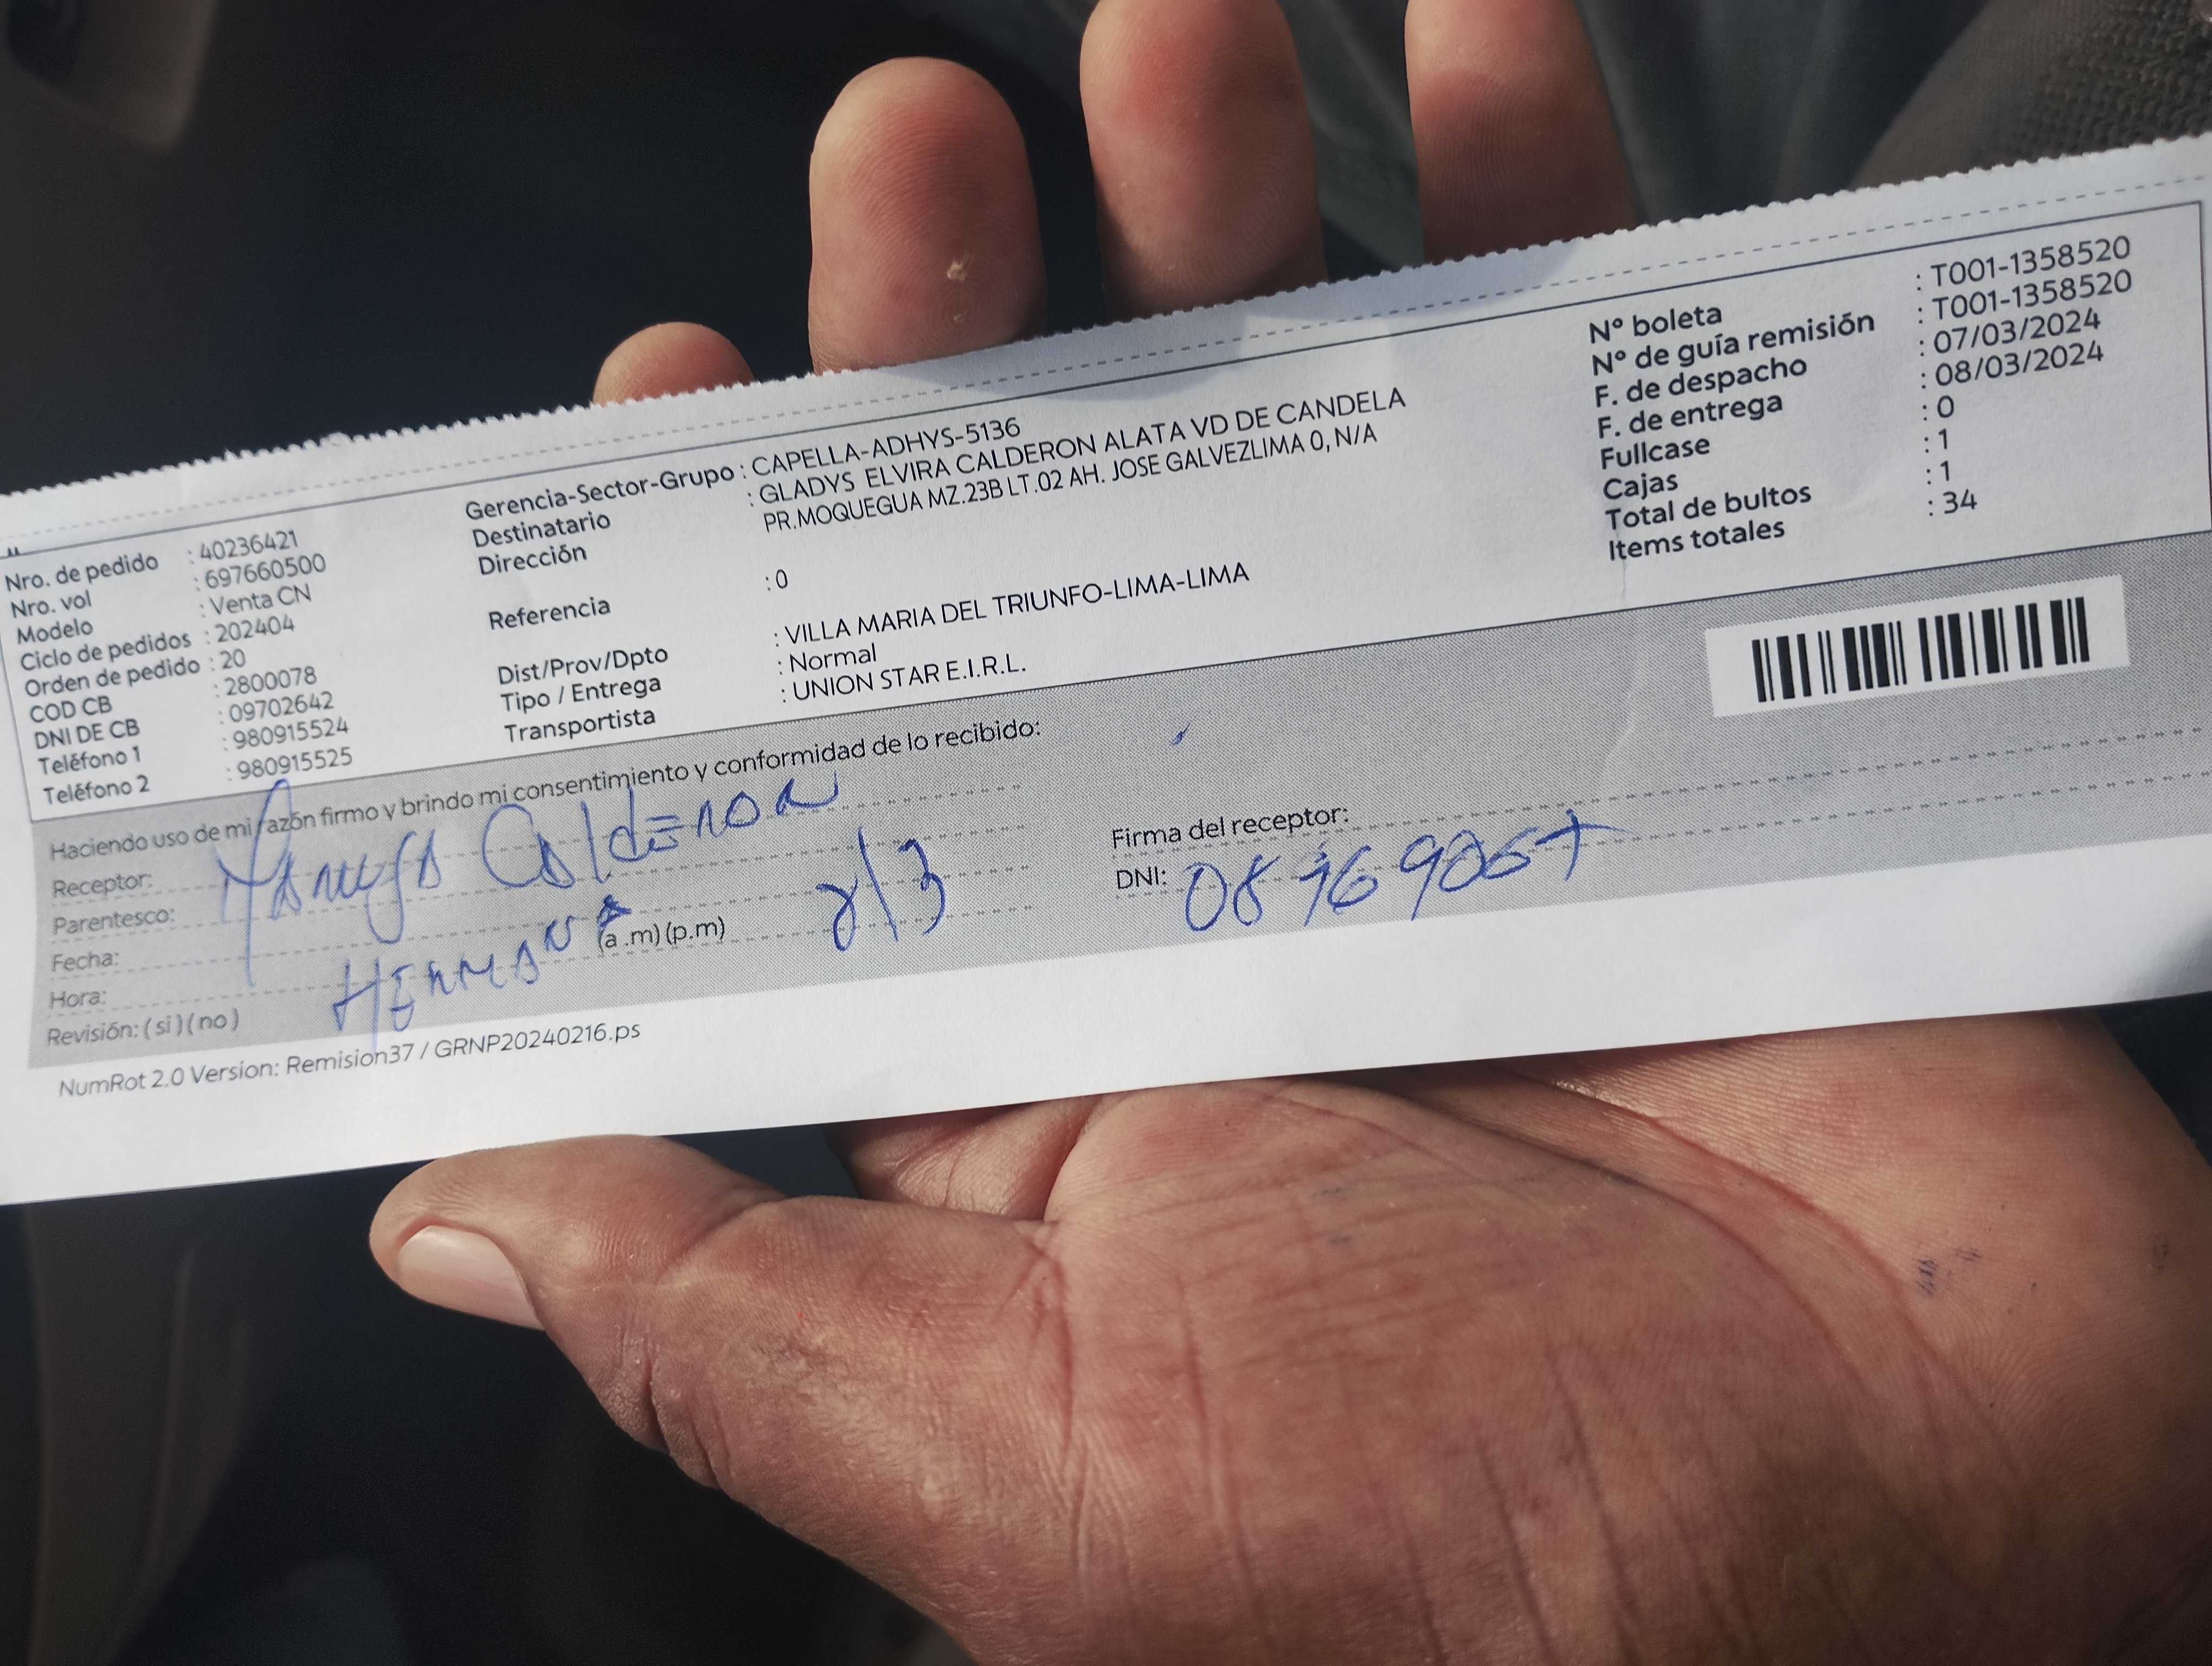 Nro. de pedido : 40236421
Nro. vol : 697660500
Modelo : Venta CN
Ciclo de pedidos : 202404
Orden de pedido : 20
COD CB : 2800078
DNI DE CB : 09702642
Teléfono 1 : 980915524
Teléfono 2 : 980915525
Gerencia-Sector-Grupo : CAPELLA-ADHYS-5136
Destinatario : GLADYS ELVIRA CALDERON ALATA VD DE CANDELA
Dirección PR.MOQUEGUA MZ.23B LT.02 AH. JOSE GALVEZLIMA 0, N/A
Referencia : 0
Dist/Prov/Dpto : VILLA MARIA DEL TRIUNFO-LIMA-LIMA
Tipo / Entrega : Normal
Transportista : UNION STAR E.I.R.L.
Nº boleta : T001-1358520
Nº de guía remisión : T001-1358520
F. de despacho : 07/03/2024
F. de entrega : 08/03/2024
Fullcase : 0
Cajas : 1
Total de bultos : 1
Items totales : 34
Haciendo uso de mi razón firmo y brindo mi consentimiento y conformidad de lo recibido:
Receptor: Calderon
Parentesco: Hermana
Fecha: 8/3
Hora: (a .m) (p.m)
Revisión: ( si ) ( no )
Firma del receptor:
DNI:
NumRot 2.0 Version: Remision37 / GRNP20240216.ps